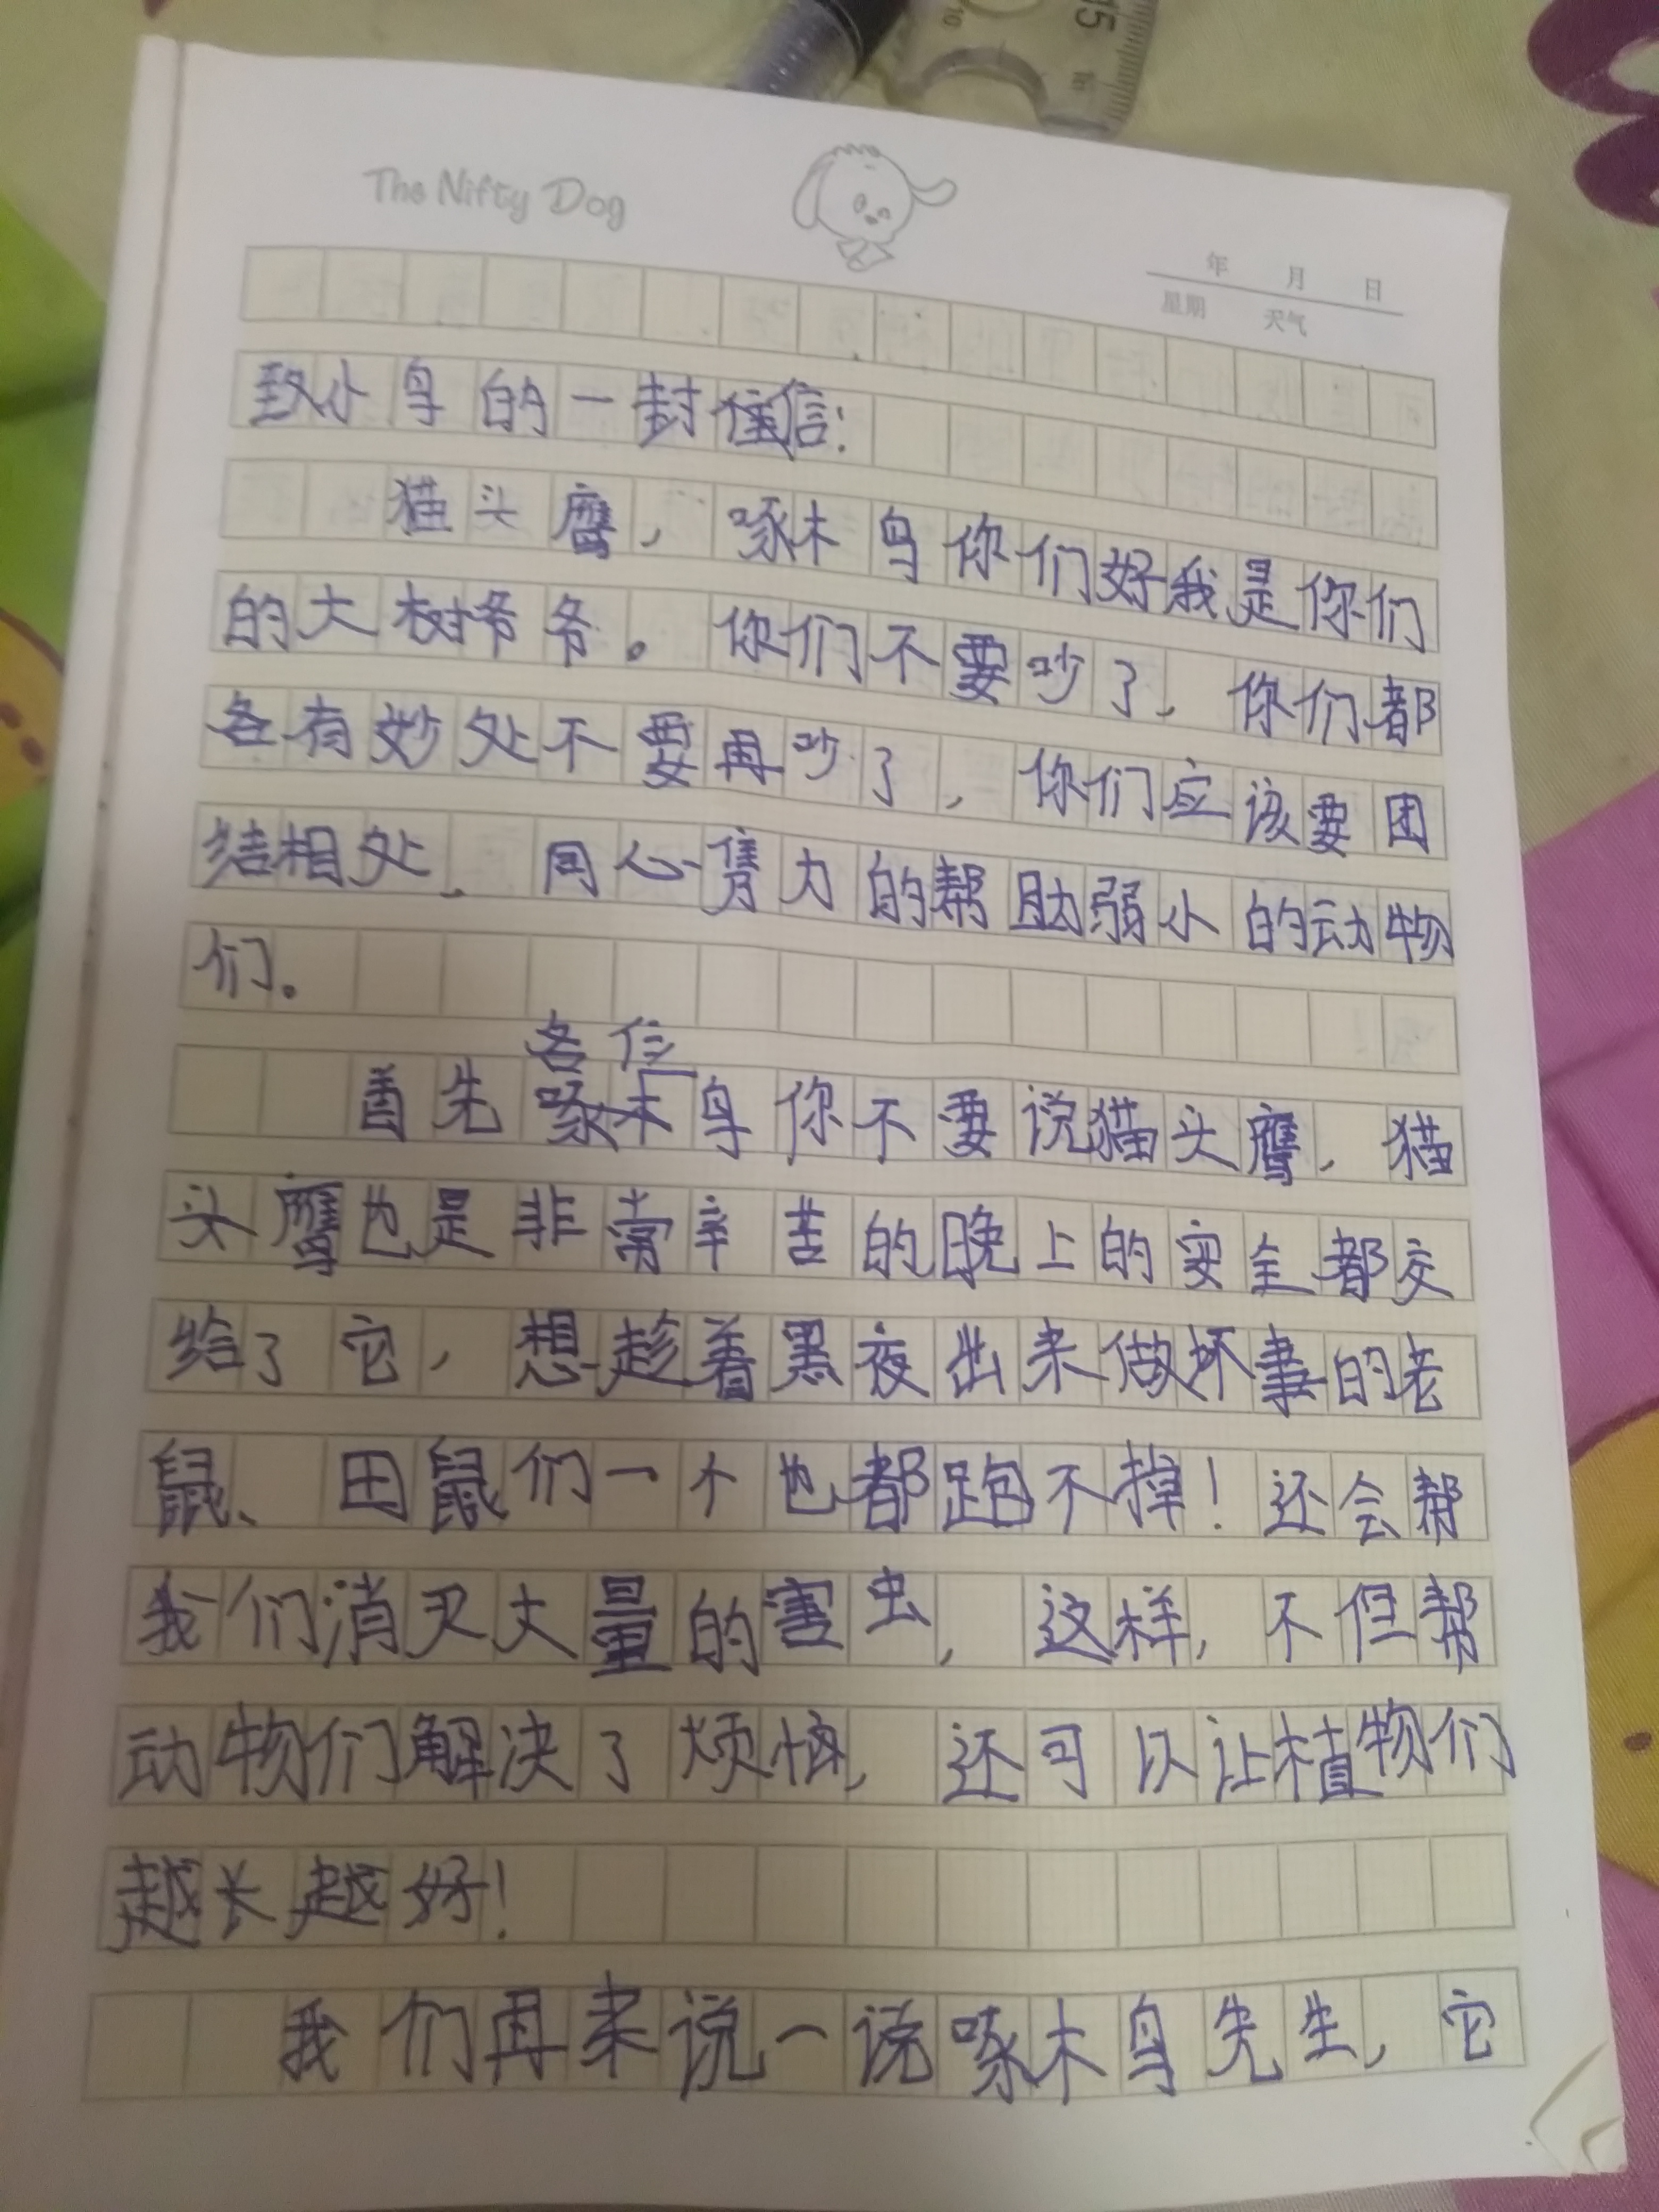 15
16
The Nifty Dog
年 月 日
星期 天气
致小鸟的一封信:
猫头鹰,啄木鸟你们好我是你们
的大树爷爷。你们不要吵了,你们都
各有妙处不要再吵了,你们应该要团
结相处,同心 力的帮助弱小的动物
们。
各位
首先啄木鸟你不要说猫头鹰,猫
头鹰也是非常辛苦的晚上的安全都交
给了它,想趁着黑夜出来做坏事的老
鼠、田鼠们一个也都跑不掉!还会帮
我们消灭大量的害虫,这样,不但帮
动物们解决了烦恼,还可以让植物们
越长越好!
我们再来说一说啄木鸟先生,它